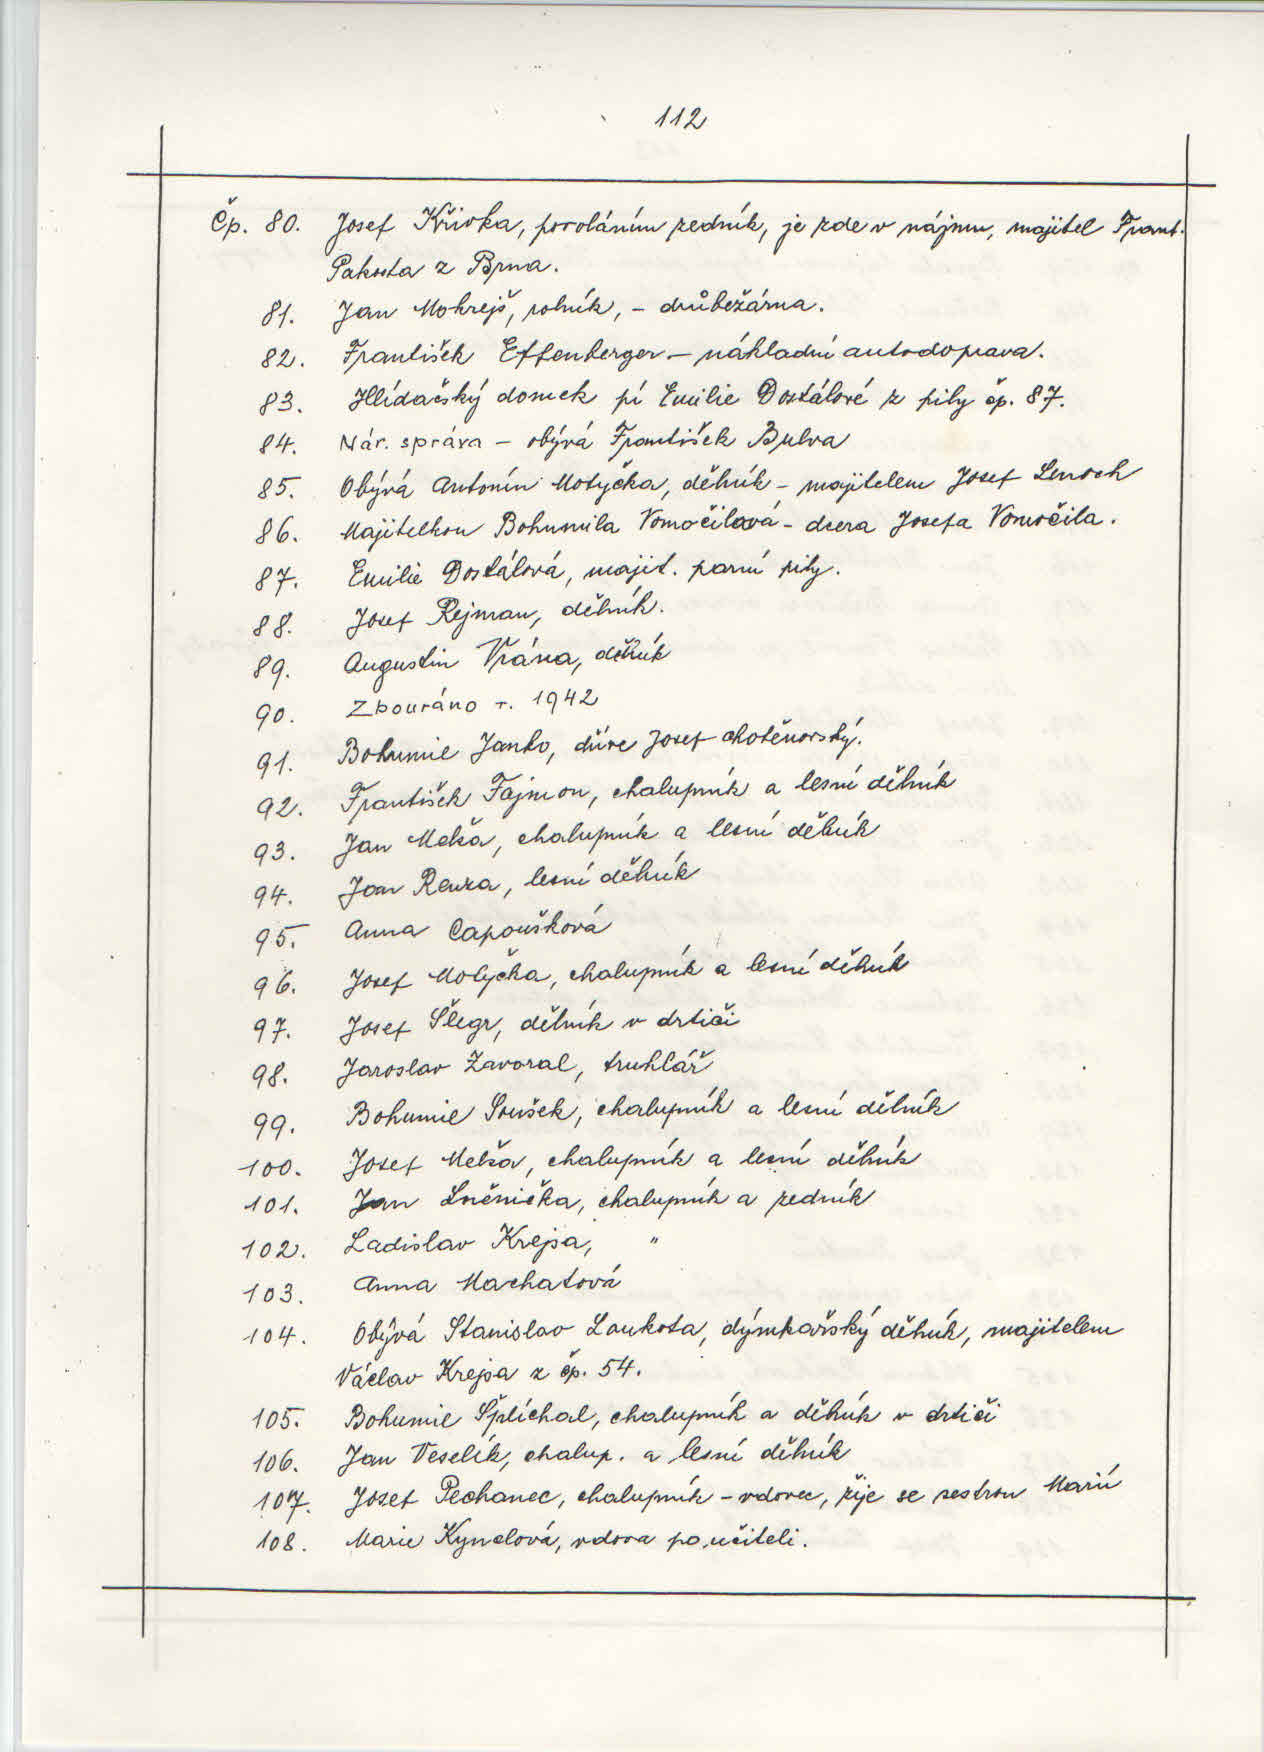 112
Čp. 80. Josef Křivka, povoláním zedník, je zde v nájmu, majitel Frant.
Pakosta z Brna.
81. Jan Mokrejš, rolník, – drůbežárna.
82. František Effenberger – nákladní autodoprava.
83. Hlídačský domek pí Emilie Dostálové z pily čp. 87.
84. Nár. správa – obývá František Bulva
85. Obývá Antonín Motyčka, dělník – majitelem Josef Lenoch
86. Majitelkou Bohumila Vomočilová – dcera Josefa Vomočila.
87. Emilie Dostálová, majit. parní pily.
88. Josef Rejman, dělník.
89. Augustin Vrána, dělník
90. Zbouráno r. 1942
91. Bohumil Janko, dříve Josef Chotěnovský.
92. František Fajmon, chalupník a lesní dělník
93. Jan Melša, chalupník a lesní dělník
94. Jan Renza, lesní dělník
95. Anna Capoušková
96. Josef Motyčka, chalupník a lesní dělník
97. Josef Šlegr, dělník v drtiči
98. Jaroslav Zavoral, truhlář
99. Bohumil Soušek, chalupník a lesní dělník
100. Josef Melša, chalupník a lesní dělník
101. Jan Lněnička, chalupník a zedník
102. Ladislav Krejsa, "
103. Anna Machatová
104. Obývá Stanislav Loukota, dýmkařský dělník, majitelem
Václav Krejsa z čp. 54.
105. Bohumil Šplíchal, chalupník a dělník v drtiči
106. Jan Veselík, chalup. a lesní dělník
107. Josef Pechanec, chalupník – vdovec, žije se sestrou Marií
108. Marie Kynclová, vdova po učiteli.